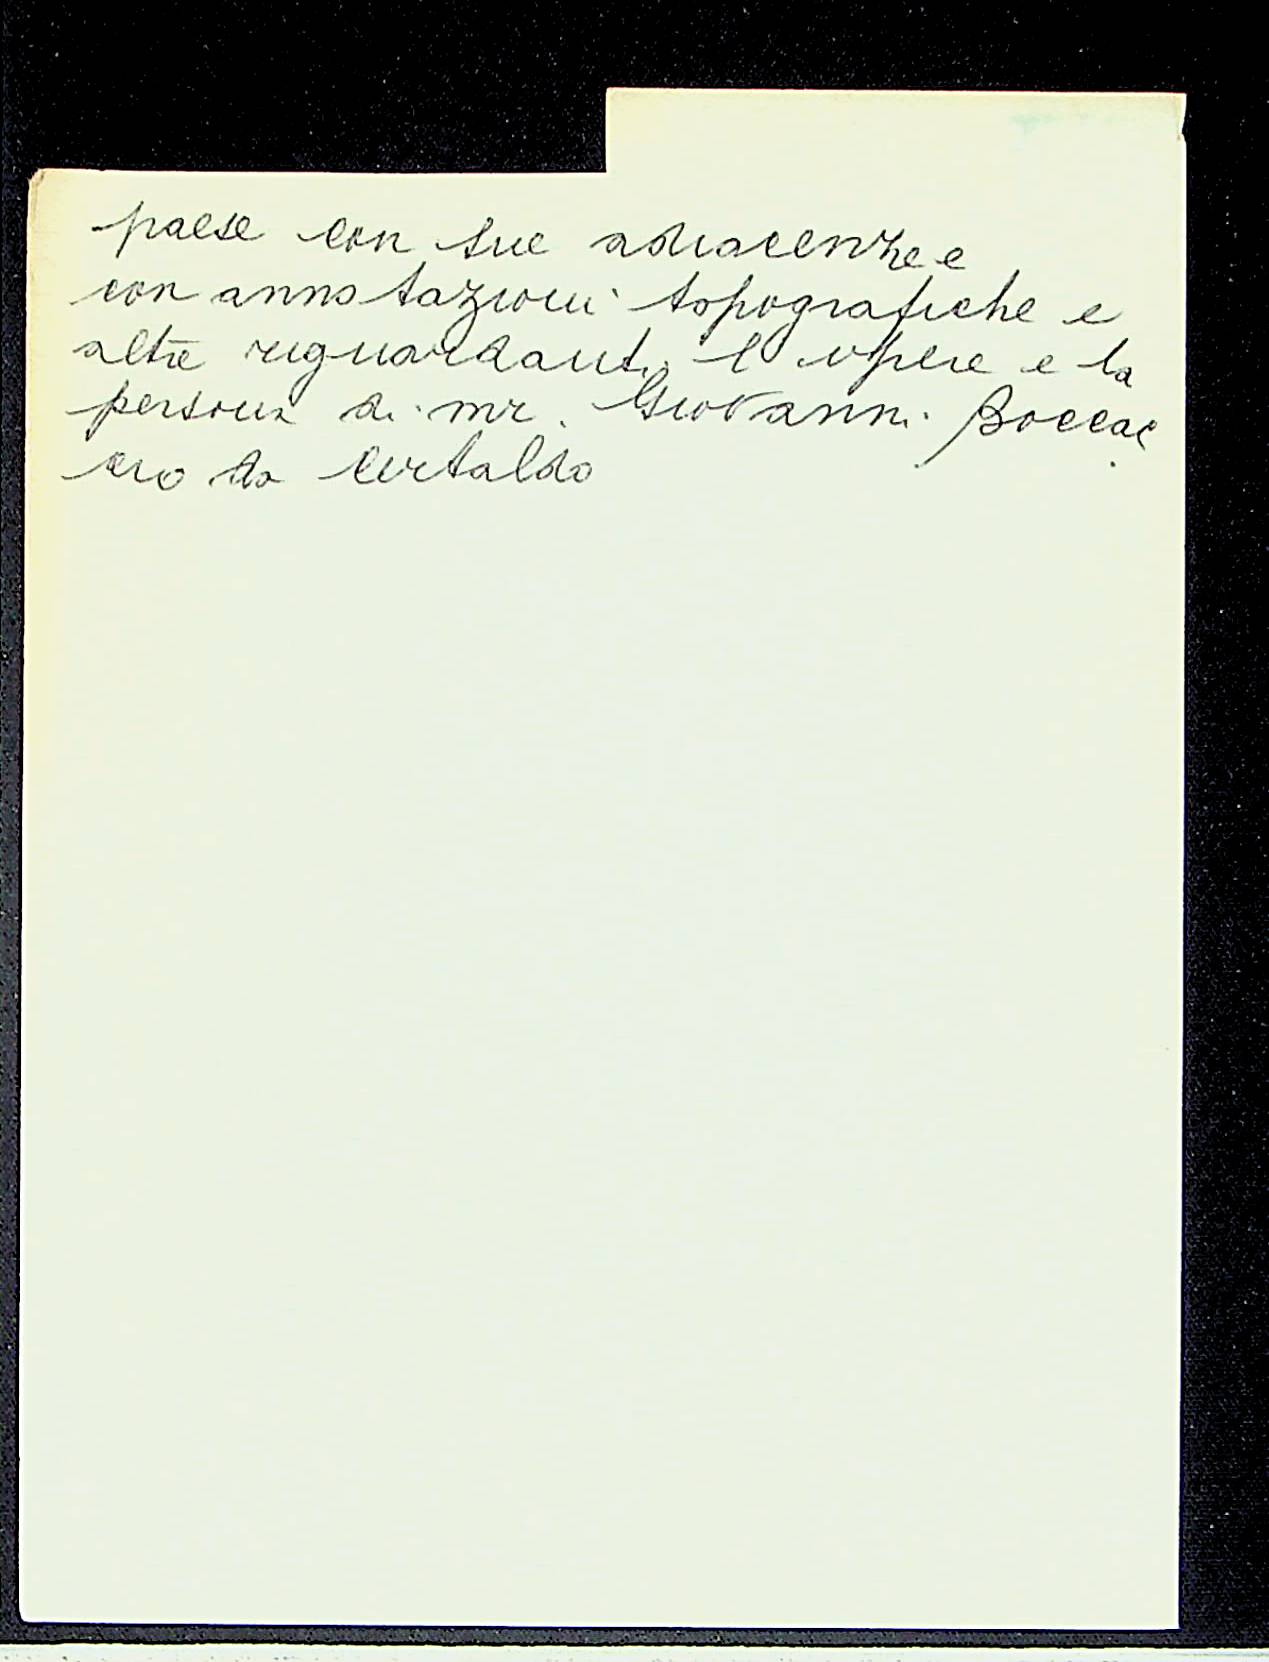 paese con sue adiacenze e
con annotazioni topografiche e
altre riguardanti l'opere e la
persona di mr. Giovanni Boccac
cio da Certaldo